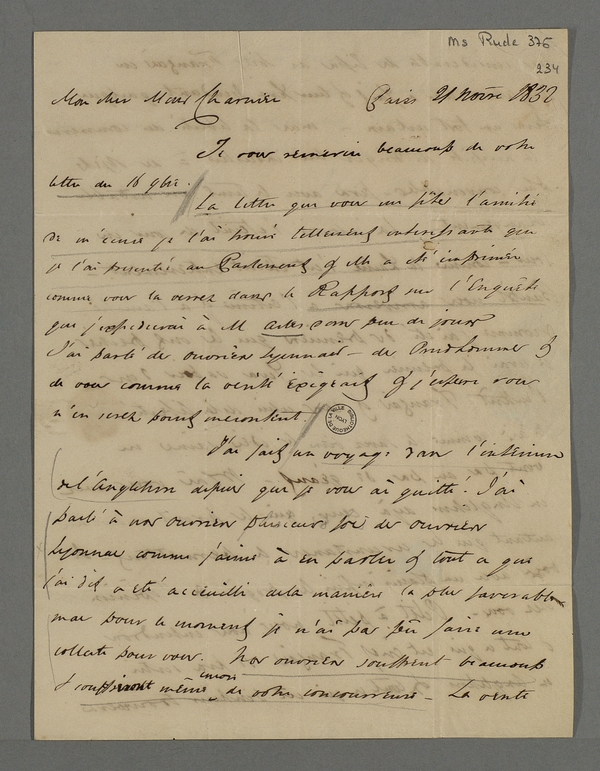 Ms Rude 376
234
Mon cher Monsr Charnier Paris 21 Novre 1832
Je vous remercie beaucoup de votre
lettre du 16 9bre.
La lettre que vous me fites l'amitié
de m'écrire je l'ai trouvé tellement intéressante que
je l'ai presenté au Parlement & elle a été imprimée
comme vous la verrez dans le Rapport sur l'Enquête
que j'expedierai à M dans peu de jours
J'ai parlé des ouvriers Lyonnais – des Prudhommes &
de vous comme la vérité éxigeait & j'espere vous
n'en serez point mecontent.
BIBLIOTHEQUE DE LA VILLE
LYON
J'ai fait un voyage dans l'interieur
de l'Angleterre depuis que je vous ai quitté. J'ai
parlé à nos ouvriers plusieurs fois des ouvriers
Lyonnais comme j'aime à en parler & tout ce que
j'ai dit a été accueilli de la manière la plus favorable
mais pour le moment je n'ai pas pu faire une
collecte pour vous. Nos ouvriers souffrent beaucoup
& souffriront même encore de votre concurrence – La vente